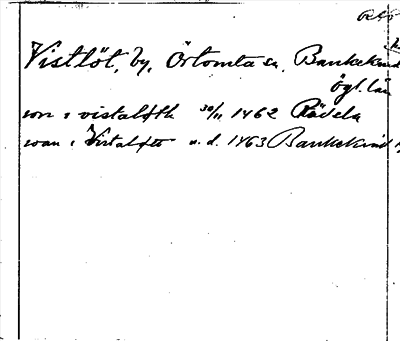 Vistlöt, by, Örtomta sn, Bankekind
Ögl. län
von i vistalöth 30/11 1462 Rävela
wan i Vistaløt u. d. 1463 Bankekind